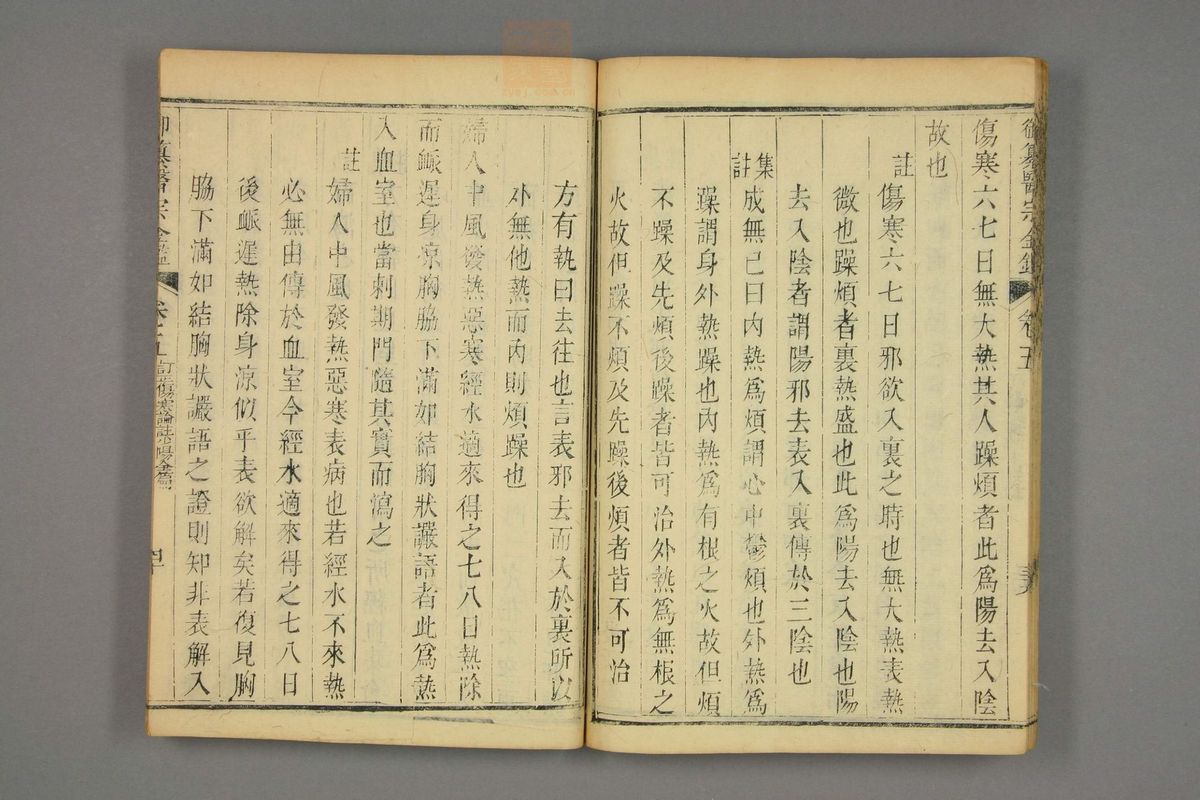 御纂醫宗金鑑 卷五
傷寒六七日無大熱其人躁煩者此爲陽去入陰
故也
註 傷寒六七日邪欲入裏之時也無大熱表熱
微也躁煩者裏熱盛也此爲陽去入陰也陽
去入陰者謂陽邪去表入裏傳於三陰也
集註 成無已曰內熱爲煩謂心中鬱煩也外熱爲
躁謂身外熱躁也內熱爲有根之火故但煩
不躁及先煩後躁者皆可治外熱爲無根之
火故但躁不煩及先躁後煩者皆不可治
方有執曰去往也言表邪去而入於裏所以
外無他熱而內則煩躁也
婦人中風發熱惡寒經水適來得之七八日熱除
而脈遲身涼胸脇下滿如結胸狀讝語者此爲熱
入血室也當刺期門隨其實而瀉之
註 婦人中風發熱惡寒表病也若經水不來熱
必無由傳於血室今經水適來得之七八日
後脈遲熱除身涼似乎表欲解矣若復見胸
脇下滿如結胸狀讝語之證則知非表解入
御纂醫宗金鑑 卷五 訂正傷寒論註少陽全篇 四十